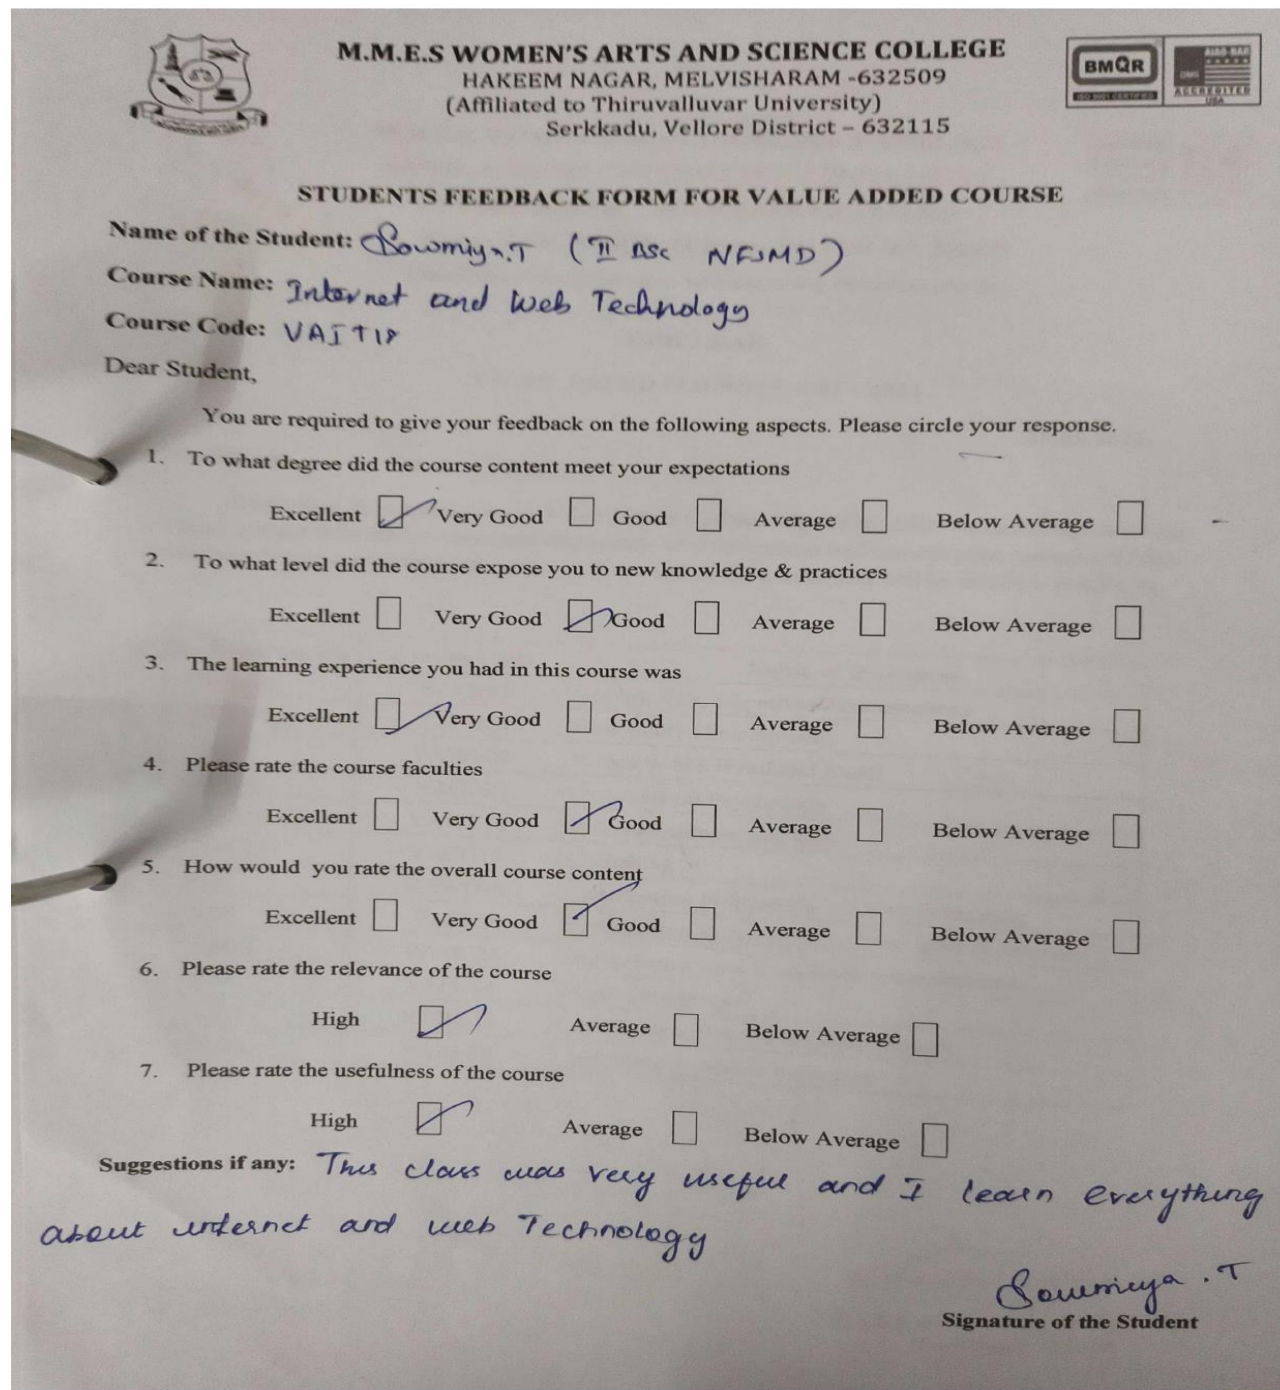 M.M.E.S WOMEN'S ARTS AND SCIENCE COLLEGE
HAKEEM NAGAR, MELVISHARAM -632509
(Affiliated to Thiruvalluvar University)
Serkkadu, Vellore District – 632115
BMQR
ISO 9001 CERTIFIED
ACCREDITED
USA
STUDENTS FEEDBACK FORM FOR VALUE ADDED COURSE
Name of the Student: Sowmiya.T (II BSc NFSMD)
Course Name: Internet and Web Technology
Course Code:
Dear Student,
You are required to give your feedback on the following aspects. Please circle your response.
1. To what degree did the course content meet your expectations
Excellent Very Good Good Average Below Average
2. To what level did the course expose you to new knowledge & practices
Excellent Very Good Good Average Below Average
3. The learning experience you had in this course was
Excellent Very Good Good Average Below Average
4. Please rate the course faculties
Excellent Very Good Good Average Below Average
5. How would you rate the overall course content
Excellent Very Good Good Average Below Average
6. Please rate the relevance of the course
High Average Below Average
7. Please rate the usefulness of the course
High Average Below Average
Suggestions if any: This class was very useful and I learn everything
about internet and web Technology
Sowmiya . T
Signature of the Student